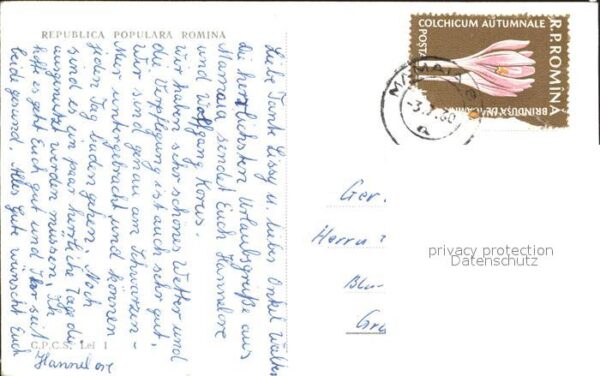 REPUBLICA POPULARA ROMINA
Liebe Tante Lissy u. lieber Onkel Walter
die herrlichsten Urlaubsgrüße aus
Mamaia sendet Euch Hannelore
und Wolfgang
Wir haben sehr schönes Wetter und
die Verpflegung ist auch sehr gut.
Wir sind genau am Schwarzen-
Meer untergebracht und können
jeden Tag baden gehen. Noch
sind es ein paar herrliche Tage die
ausgenutzt werden müssen. Ich
hoffe es geht Euch gut und Ihr seit
beide gesund. Alles Gute wünscht Euch
Hannelore
C.P.C.S. Lei 1
COLCHICUM AUTUMNALE
POSTA
R.P.ROMÎNA
BRÎNDUȘA DE TOAMNĂ
MAMAIA
-3.7.60
a
Ger.
Herrn
Blu-
Gru
privacy protection
Datenschutz